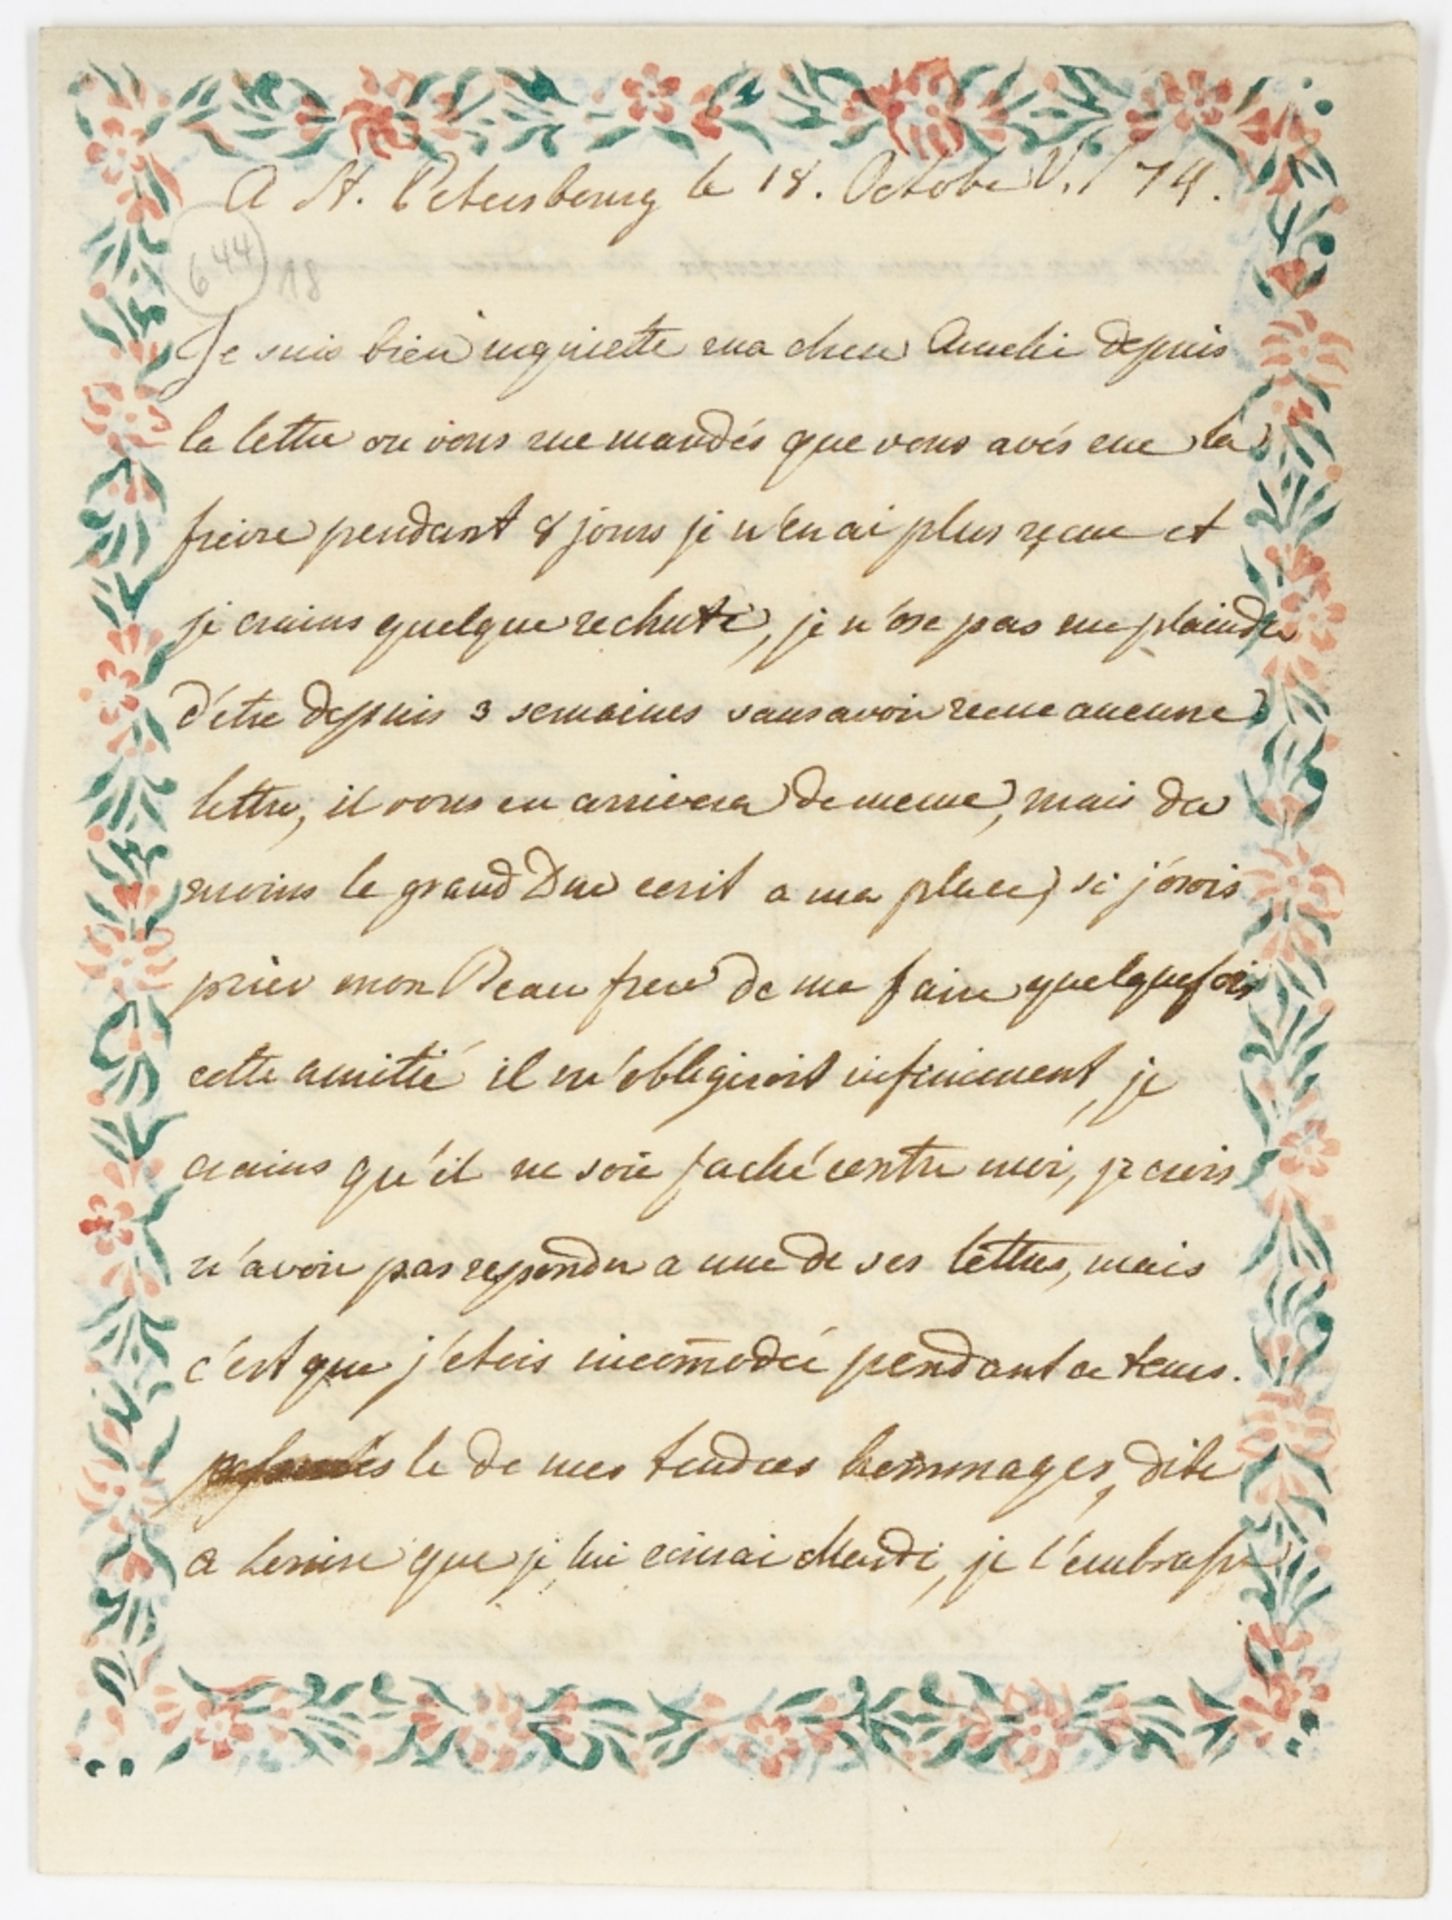 A St. Petersbourg le 18. Octobe V. 1 74.
644
18
Je suis bien inquiette ma chere Amelie depuis
la lettre ou vous me mandés que vous avés eue la
fievre pendant 8 jours je n'en ai plus reçue et
je crains quelque rechute, je n'ose pas me plaindre
d'etre depuis 3 semaines sans avoir recue aucunne
lettre, il vous en arrivera de meme, mais du
moins le grand Duc ecrit a ma place, si j'osois
prier mon Beau frere de me faire quelquefois
cette amitié il m'obligeroit infiniment, je
crains qu'il ne soie faché contre moi, je crois
n'avoir pas repondu a une de ses lettres, mais
c'est que j'etois incom̄odée pendant ce tems.
le de mes tendres hommages, dite
a que je lui ecrirai Mardi, je l'embrasse